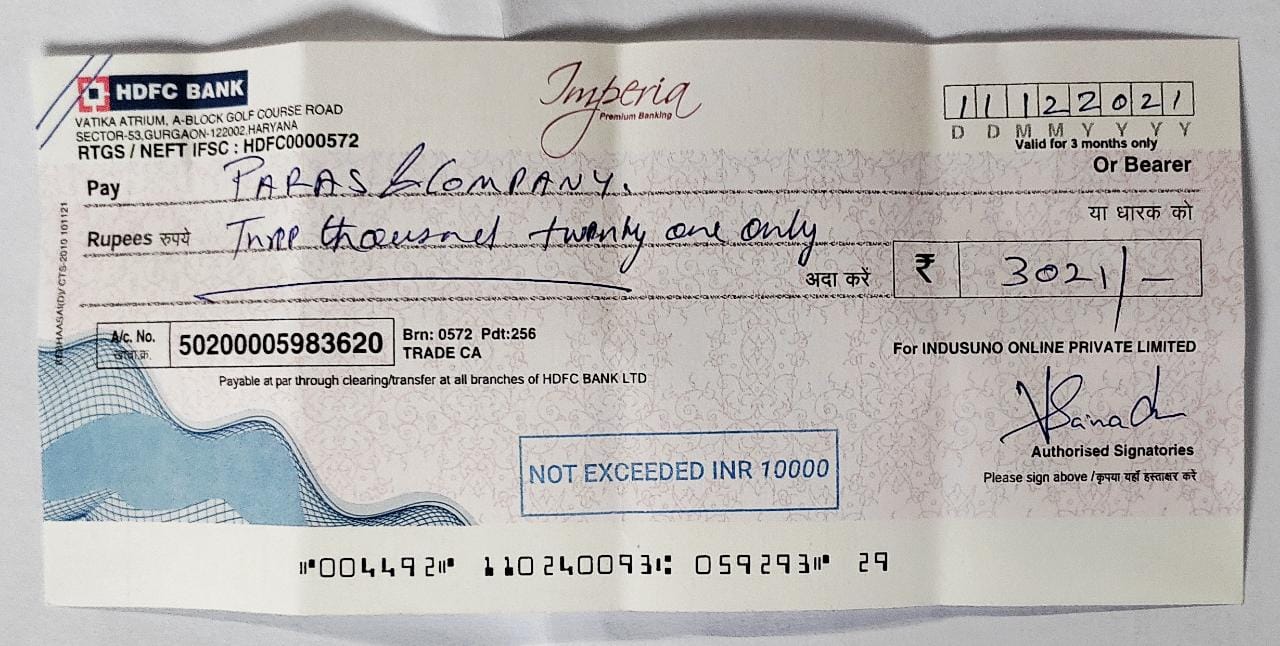 HDFC BANK
VATIKA ATRIUM, A-BLOCK GOLF COURSE ROAD
SECTOR-53,GURGAON-122002,HARYANA
RTGS / NEFT IFSC : HDFC0000572
Imperia
Premium Banking
11122021
D D M M Y Y Y Y
Valid for 3 months only
Pay PARAS & COMPANY.
Or Bearer
या धारक को
Rupees रुपये Three thousand twenty one only
अदा करें ₹ 3021/-
A/c. No.
खाता.क्र.
50200005983620
Brn: 0572 Pdt:256
TRADE CA
Payable at par through clearing/transfer at all branches of HDFC BANK LTD
For INDUSUNO ONLINE PRIVATE LIMITED
Authorised Signatories
Please sign above /कृपया यहाँ हस्ताक्षर करें
NOT EXCEEDED INR 10000
⑈004492⑈ 110240093⑆ 059293⑈ 29
CTS-2010 101121